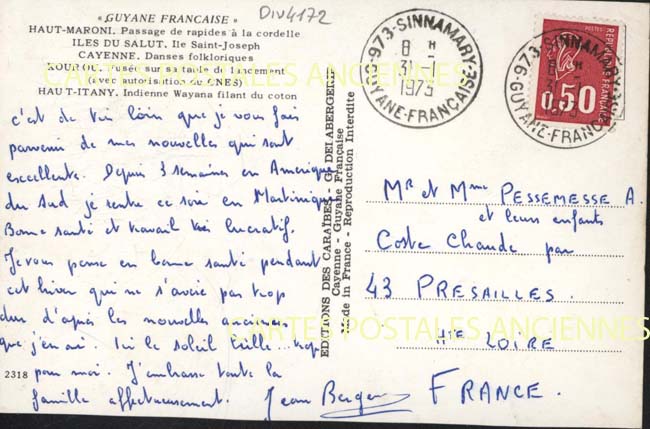 « GUYANE FRANCAISE »
DIV4172
HAUT-MARONI. Passage de rapides à la cordelle
ILES DU SALUT. Ile Saint-Joseph
CAYENNE. Danses folkloriques
KOUROU. Fusée sur sa table de lancement
(avec autorisation du CNES)
HAUT-ITANY. Indienne Wayana filant du coton
c'est de très loin que je vous fais
parvenir de mes nouvelles qui sont
excellentes. Depuis 3 semaines en Amérique
du Sud je rentre ce soir en Martinique
Bonne santé et travail très lucratif.
Je vous pense en bonne santé pendant
cet hiver qui ne s'avère pas trop
dur d'après les nouvelles anciennes
que j'en ai. Ici le soleil brille... trop
pour moi. J'embrasse toute la
famille affectueusement. Jean Berger
2318
EDITIONS DES CARAÏBES - G. DELABERGERIE
Cayenne - Guyane Française
Made in France - Reproduction Interdite
973-SINNAMARY
8 H
31-1
1973
GUYANE-FRANÇAISE
POSTES
REPUBLIQUE FRANÇAISE
0,50
973-SINNAMARY
8 H
31-1
1973
GUYANE-FRANÇAISE
Mr et Mme PESSEMESSE A.
et leurs enfants
Coste Chaude par
43 PRESAILLES.
Hte LOIRE
FRANCE.
CARTES POSTALES ANCIENNES
CARTES POSTALES ANCIENNES